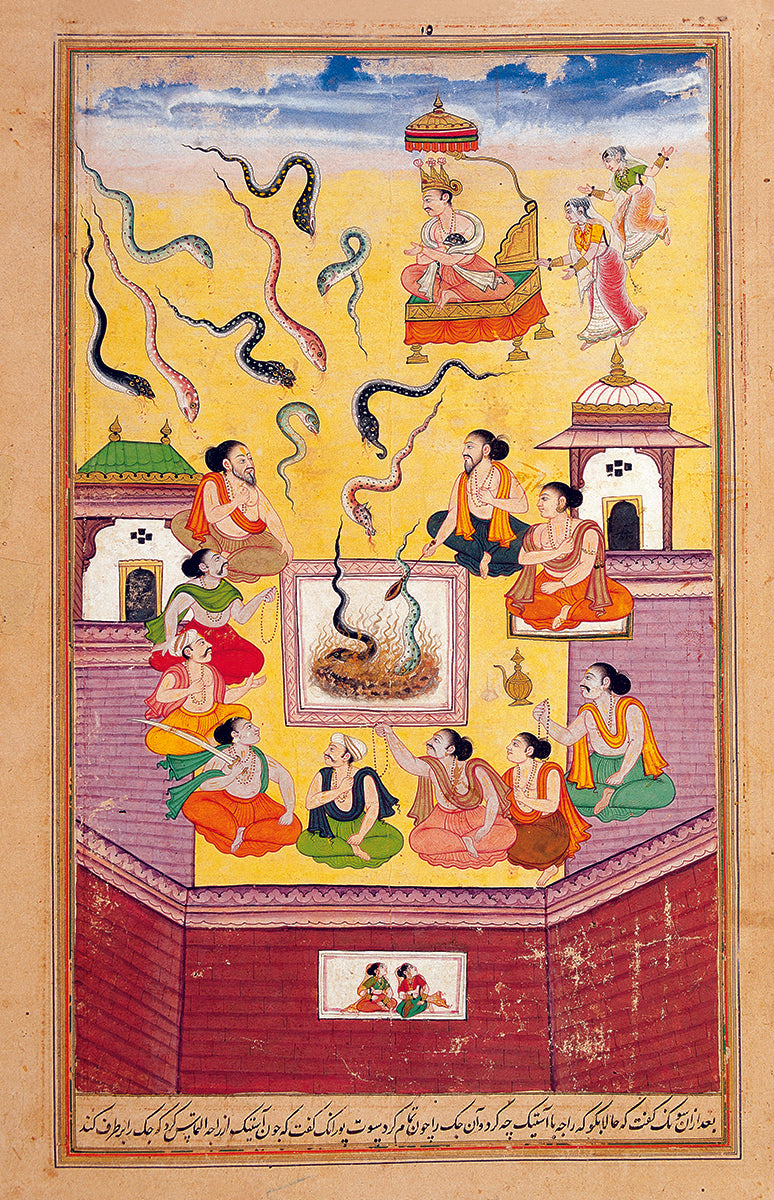 ۱۵
بعد ازان سونک گفت که حالا بگو که راجه با آستیک چه کرد و آن جک را چون تمام کرد سوت پورانک گفت که چون آستیک از راجه التماس کرد که جک را برطرف کند